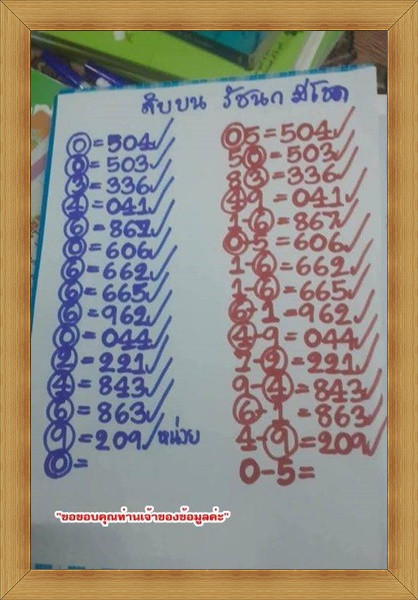 สิบบน รัชนก มีโชค
0=504✓
0=503✓
3=336✓
4=041✓
6=862✓
0=606✓
6=662✓
6=665✓
6=962✓
0=044✓
2=221✓
4=843✓
6=863✓
9=209✓หน่วย
0=
05=504✓
50=503✓
83=336✓
49=041✓
1-6=867✓
0-5=606✓
1-6=662✓
1-6=665✓
6-1=962✓
4-9=044✓
7-2=221✓
9-4=843✓
6-1=863✓
4-9=209✓
0-5=
"ขอขอบคุณท่านเจ้าของข้อมูลค่ะ"